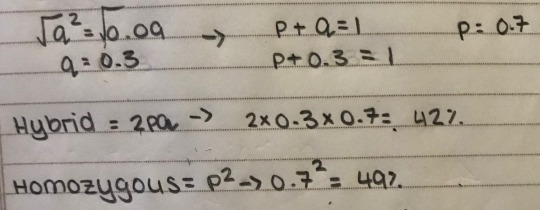 √q² = √0.09 → p + q = 1 p = 0.7
q = 0.3 p + 0.3 = 1
Hybrid = 2pq → 2 × 0.3 × 0.7 = 42%
Homozygous = p² → 0.7² = 49%